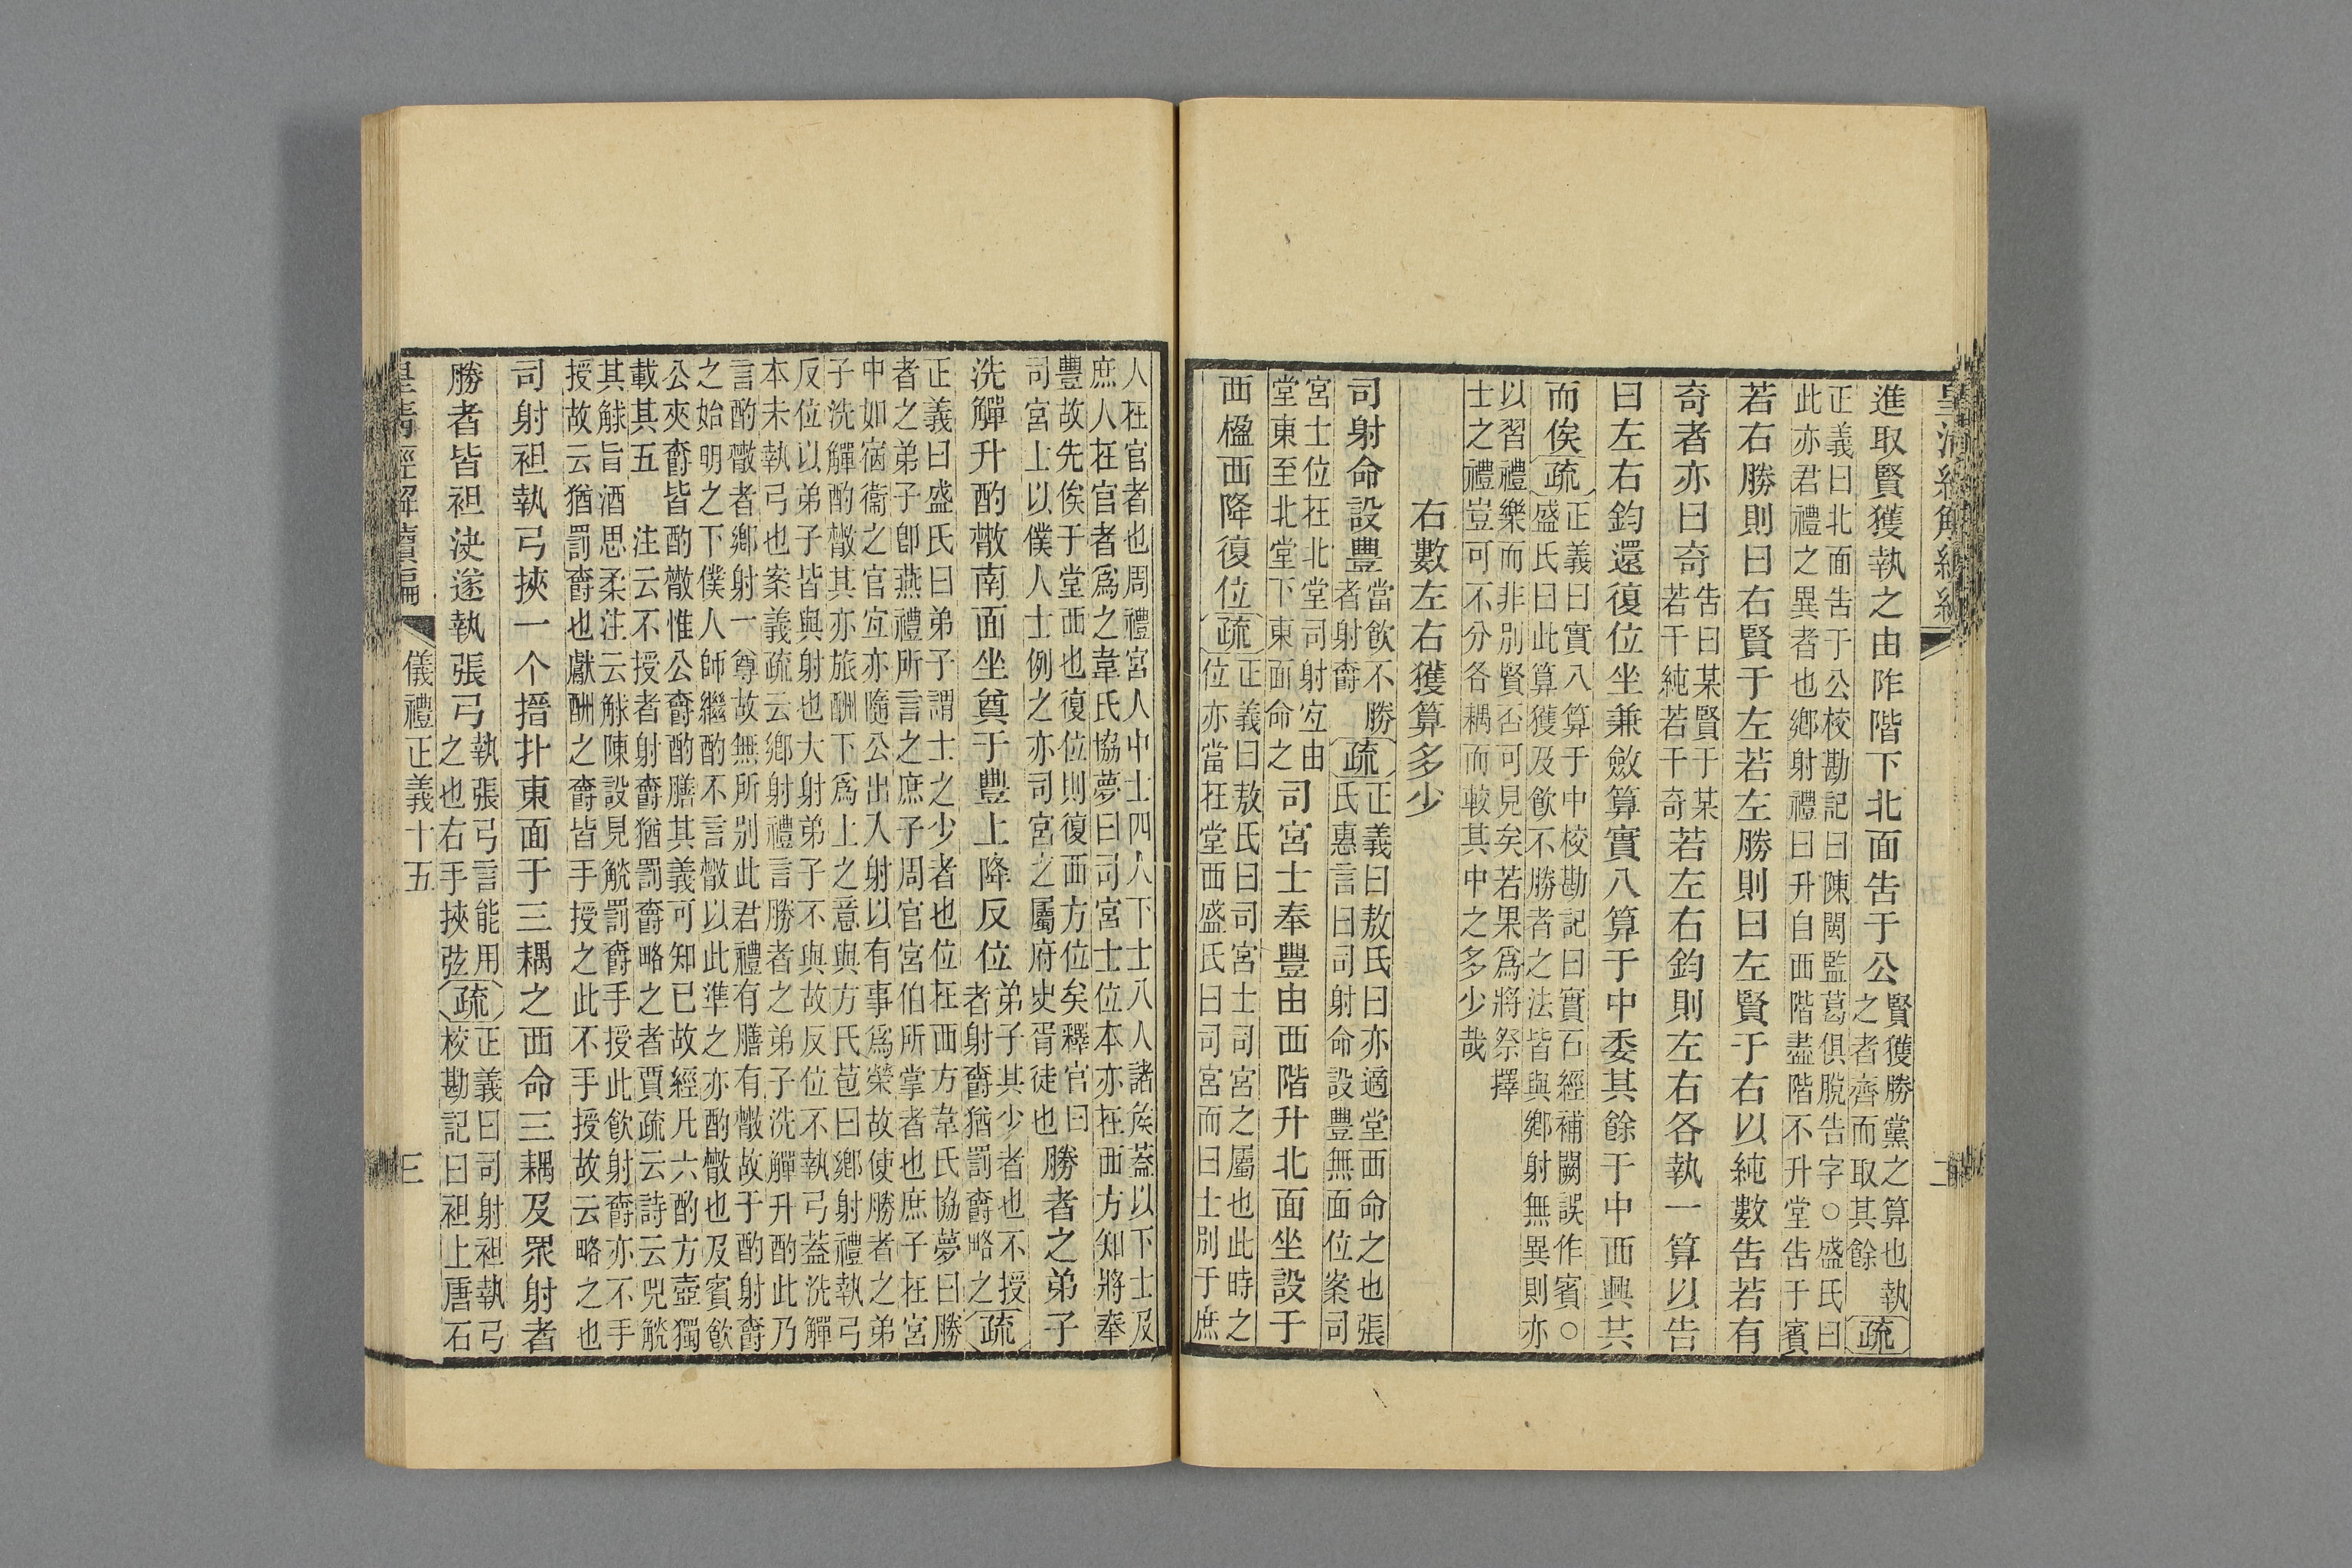 皇清經解續編
二
進取賢獲執之由阼階下北面告于公賢獲勝黨之算也執之者齊而取其餘疏
正義曰北面告于公校勘記曰陳閩監葛俱脫告字○盛氏曰
此亦君禮之異者也鄉射禮曰升自西階盡階不升堂告于賓
若右勝則曰右賢于左若左勝則曰左賢于右以純數告若有
奇者亦曰奇告曰某賢于某若干純若干奇若左右鈞則左右各執一算以告
曰左右鈞還復位坐兼斂算實八算于中委其餘于中西興共
而俟疏正義曰實八算于中校勘記曰實石經補闕誤作賓○
盛氏曰此算獲及飲不勝者之法皆與鄉射無異則亦
以習禮樂而非別賢否可見矣若果爲將祭擇
士之禮豈可不分各耦而較其中之多少哉
右數左右獲算多少
司射命設豐當飲不勝者射爵疏正義曰敖氏曰亦適堂西命之也張
氏惠言曰司射命設豐無面位案司
宮士位在北堂司射宜由
堂東至北堂下東面命之司宮士奉豐由西階升北面坐設于
西楹西降復位疏正義曰敖氏曰司宮士司宮之屬也此時之
位亦當在堂西盛氏曰司宮而曰士別于庶
人在官者也周禮宮人中士四人下士八人諸矦蓋以下士及
庶人在官者爲之韋氏協夢曰司宮士位本亦在西方知將奉
豐故先俟于堂西也復位則復西方位矣釋官曰
司宮上以僕人士例之亦司宮之屬府史胥徒也勝者之弟子
洗觶升酌散南面坐奠于豐上降反位弟子其少者也不授者射爵猶罰爵略之疏
正義曰盛氏曰弟子謂士之少者也位在西方韋氏協夢曰勝
者之弟子卽燕禮所言之庶子周官宮伯所掌者也庶子在宮
中如宿衞之官宜亦隨公出入射以有事爲榮故使勝者之弟
子洗觶酌散其亦旅酬下爲上之意與方氏苞曰鄉射禮執弓
反位以弟子皆與射也大射弟子不與故反位不執弓蓋洗觶
本未執弓也案義疏云鄉射禮言勝者之弟子洗觶升酌此乃
言酌散者鄉射一尊故無所別此君禮有膳有散故于酌射爵
之始明之下僕人師繼酌不言散以此準之亦酌散也及賓飲
公夾爵皆酌散惟公爵酌膳其義可知已故經凡六酌方壺獨
載其五　注云不授者射爵猶罰爵略之者賈疏云詩云兕觥
其觩旨酒思柔注云觩陳設見觥罰爵手授此飲射爵亦不手
授故云猶罰爵也獻酬之爵皆手授之此不手授故云略之也
司射袒執弓挾一个搢扑東面于三耦之西命三耦及眾射者
勝者皆袒決遂執張弓執張弓言能用之也右手挾弦疏正義曰司射袒執弓
校勘記曰袒上唐石
皇清經解續編
儀禮正義十五
三